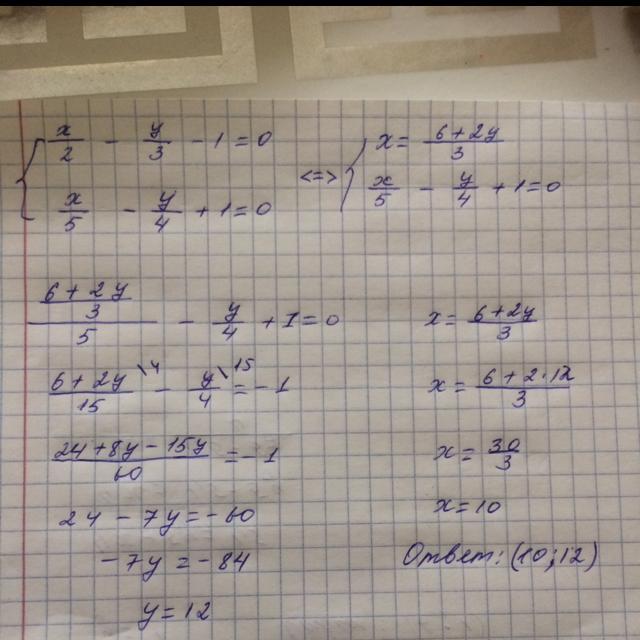 { x/2 - y/3 - 1 = 0
x/5 - y/4 + 1 = 0
<=> { x = (6 + 2y)/3
x/5 - y/4 + 1 = 0
((6 + 2y)/3)/5 - y/4 + 1 = 0
(6 + 2y)/15 \4 - y/4 \15 = -1
(24 + 8y - 15y)/60 = -1
24 - 7y = -60
-7y = -84
y = 12
x = (6 + 2y)/3
x = (6 + 2·12)/3
x = 30/3
x = 10
Ответ: (10; 12)